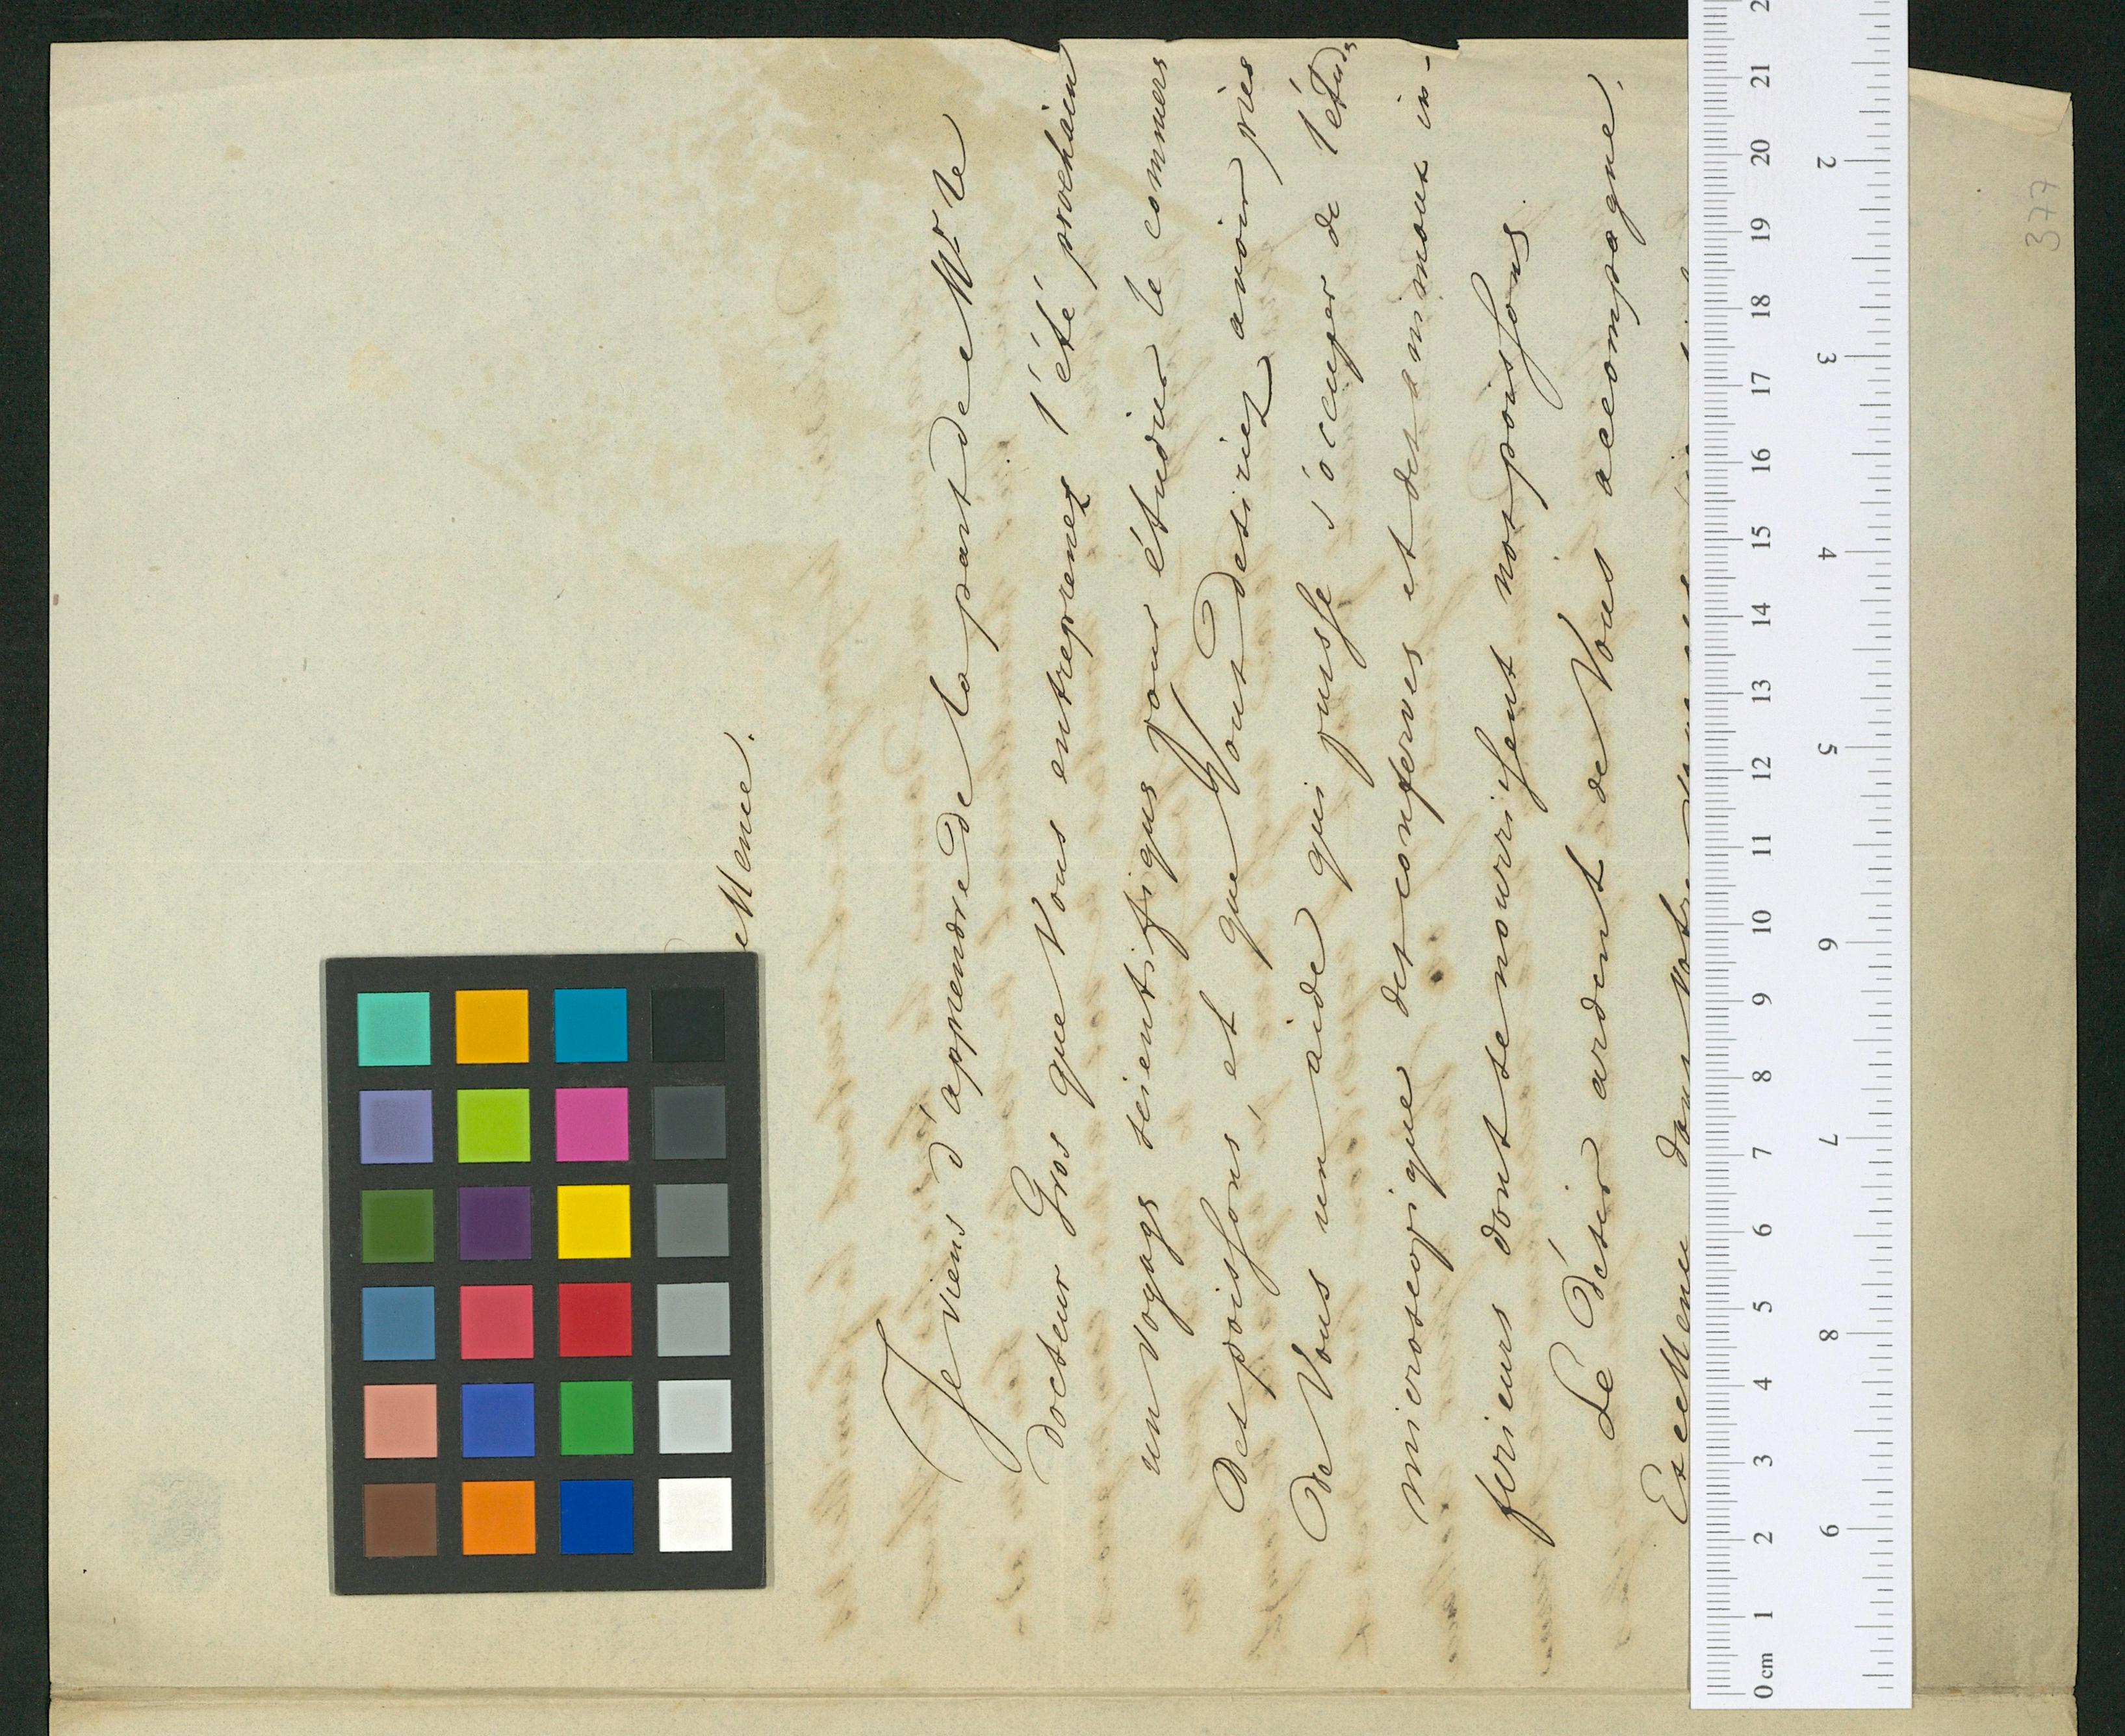 eMenee.
Je viens d'apprendre de la part de Mr le
docteur Gros que Vous entreprenez l'été prochain
un voyage scientifique pour étudier le commers
des poissons, et que Vous desiriez avoir près
de Vous un aide qui puisse s'occuper de l'étude
microscopique des conferves et des animaux in-
ferieurs dont se nourrissent nos poissons.
Le désir ardent de Vous accompagne.
dans Votre
377
0 cm 1 2 3 4 5 6 7 8 9 10 11 12 13 14 15 16 17 18 19 20 21 2
2 3 4 5 6 7 8 9